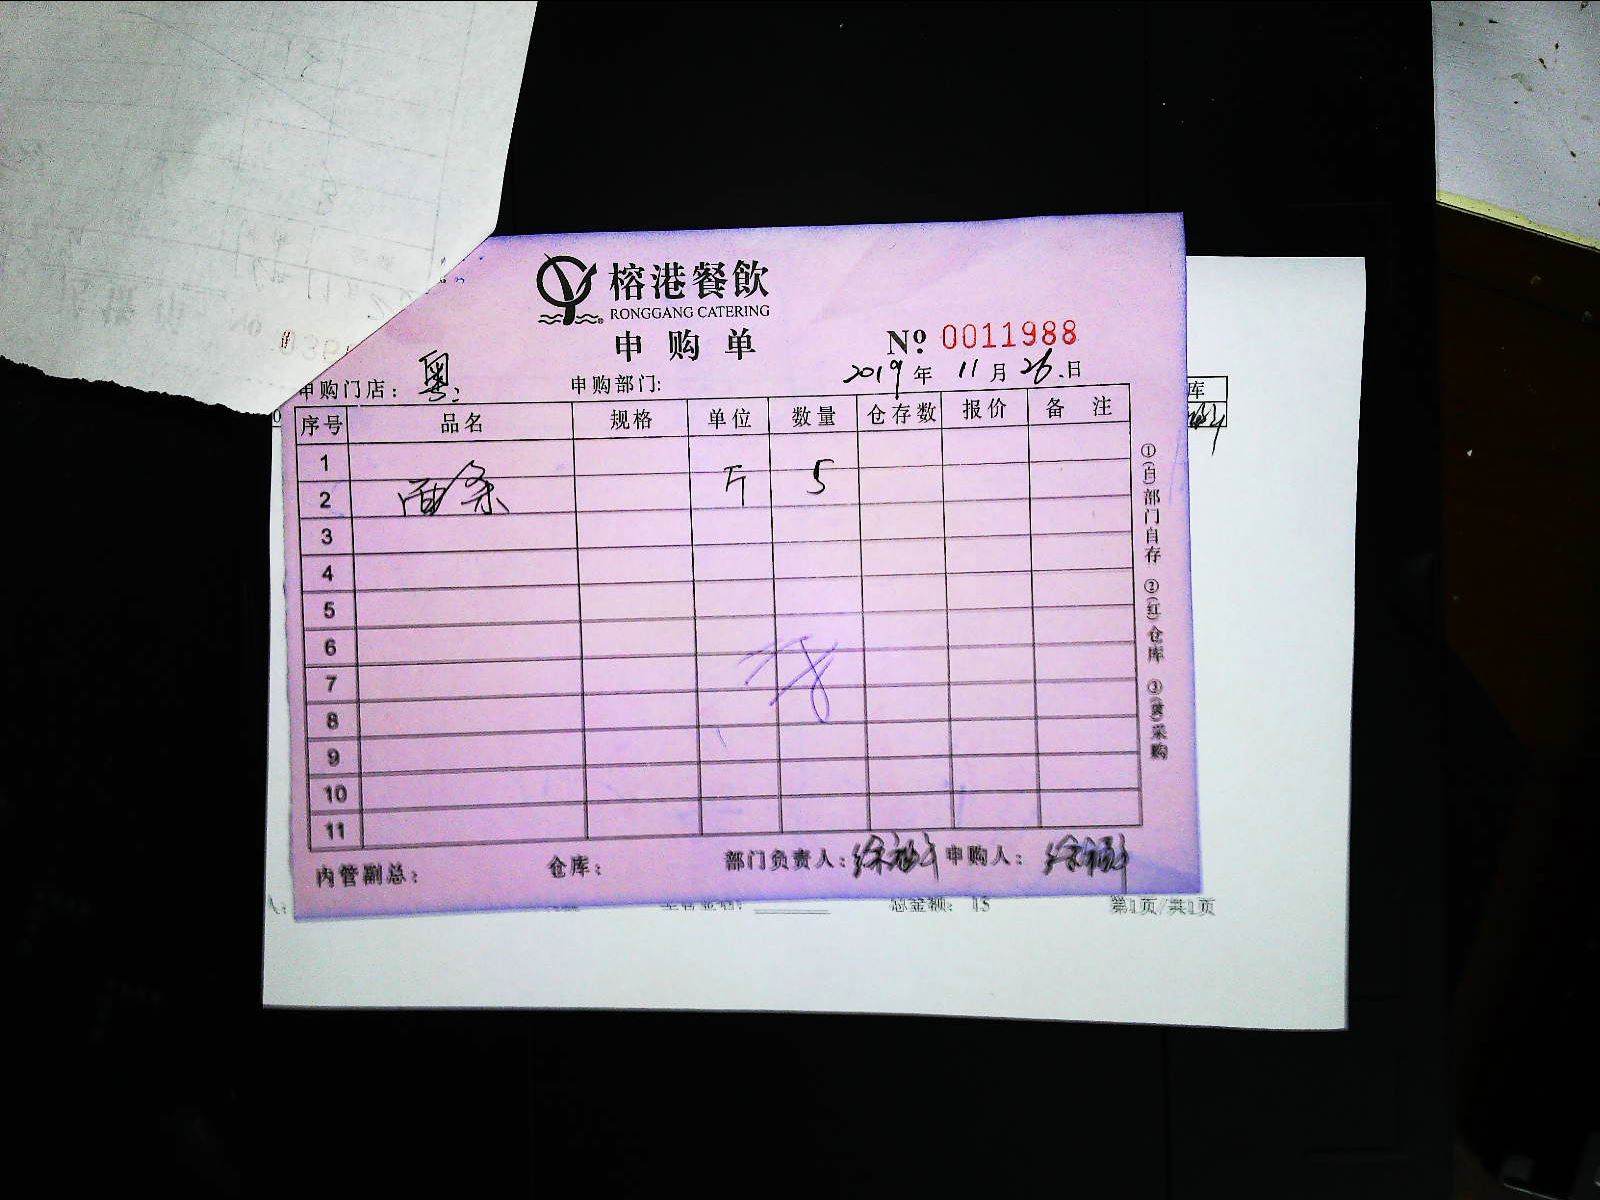 榕港餐飲
RONGGANG CATERING
申购单
№ 0011988
申购门店： 粤 申购部门: 2019 年 11 月 26 日
序号 品名 规格 单位 数量 仓存数 报价 备 注
1
2 面条 斤 5
3
4
5
6
7
8
9
10
11
①(白)部门自存 ②(红)仓库 ③(黄)采购
内管副总： 仓库： 部门负责人： 申购人：
库
总金额: 15 第1页/共1页